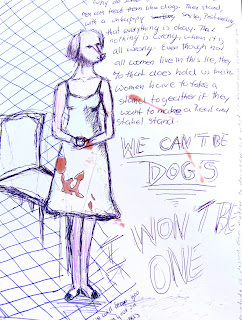 men can treat them like dogs. They stand,
with a unhappy smile, Pretending
that everything is okay. That
nothing is wrong, when it is
all wrong. Even though not
all women live in this lie, they
% that does hold us back.
Women have to take a
stand together if they
want to make a head and
stand.
WE CAN'T BE
DOGS
WON'T BE
ONE